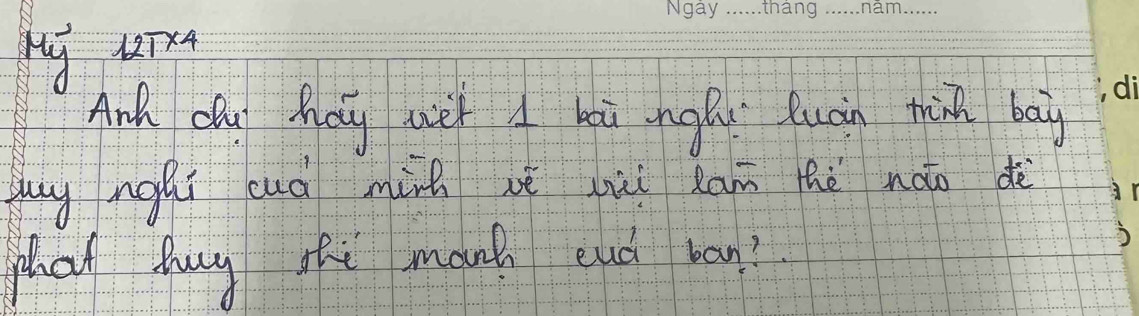 Ngày ......tháng ......năm......
Mỹ 12TX4
Anh chị hãy viết 1 bài nghị luận trình bày
suy nghĩ của mình về việc làm thế nào để
phát huy thế mạnh của bạn?.
; di